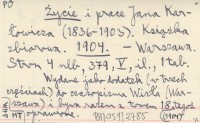 PO
Życie i prace Jana Kar-
łowicza (1836-1903). Książka
zbiorowa. 1904. - Warszawa.
Stron 4 nlb., 379, V, il., 1 tab.
Wydane jako dodatek (w trzech
częściach) do czasopisma Wisła (War-
szawa) i bywa razem z tomem 18 tegoż
oprawione. (1904)